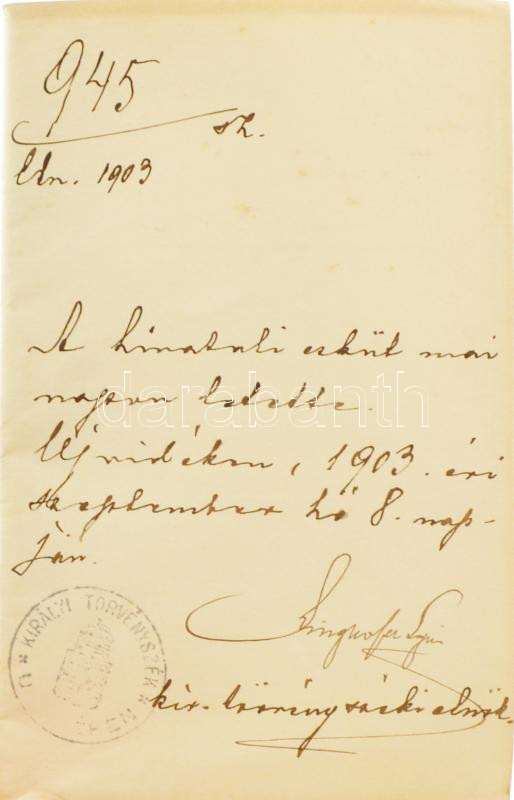 945
sz.
Eln. 1903
A hivatali esküt mai
napon letette.
Ujvidéken, 1903. évi
szeptember hó 8. nap-
ján.
kir. törvényszéki elnök.
KIRÁLYI TÖRVÉNYSZÉK
darabanth